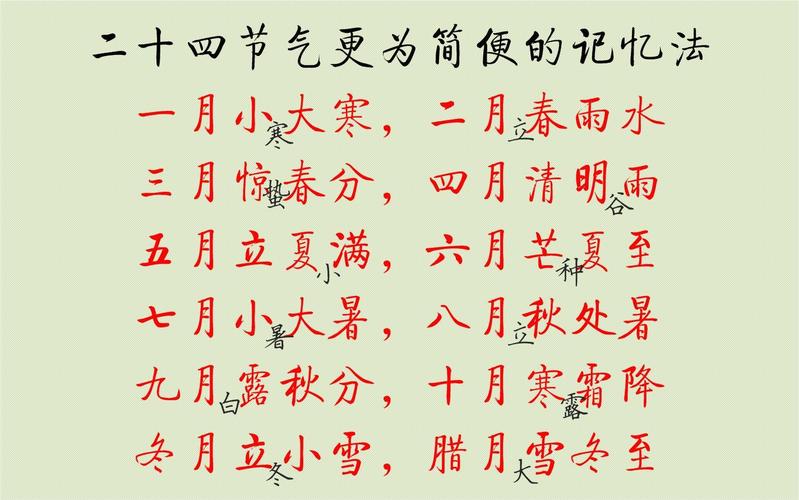 二十四节气更为简便的记忆法
一月小寒大寒，二月立春雨水
三月惊蛰春分，四月清明谷雨
五月立夏小满，六月芒种夏至
七月小暑大暑，八月立秋处暑
九月白露秋分，十月寒露霜降
冬月立冬小雪，腊月大雪冬至